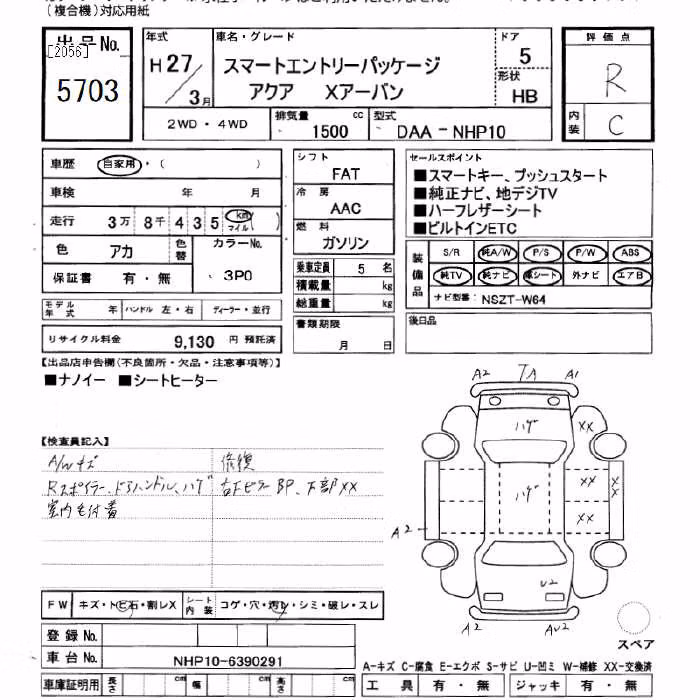 (複合機)対応用紙
出品No.
[2056]
5703
年式
H27/3月
車名・グレード
スマートエントリーパッケージ
アクア Xアーバン
ドア
5
形状
HB
評価点
R
内装
C
2WD・4WD
排気量
1500 cc
型式
DAA-NHP10
車歴 自家用・( )
車検 年 月
走行 3万 8千 4 3 5 km マイル ( )
色 アカ
色替
カラーNo.
3P0
保証書 有・無
モデル年式 年
ハンドル 左・右
ディーラー・並行
リサイクル料金 9,130 円 預託済
シフト
FAT
冷房
AAC
燃料
ガソリン
乗車定員 5 名
積載量 kg
総重量 kg
書類期限
月 日
セールスポイント
■スマートキー、プッシュスタート
■純正ナビ、地デジTV
■ハーフレザーシート
■ビルトインETC
装備品
S/R 純A/W P/S P/W ABS
純TV 純ナビ 革シート 外ナビ エアB
ナビ型番: NSZT-W64
後日品
【出品店申告欄(不良箇所・欠品・注意事項等)】
■ナノイー ■シートヒーター
【検査員記入】
A/W キズ
Rスポイラー、ドアハンドル、ハゲ
室内毛付着
修復
右下ピラーBP、下部XX
A2 A1
ハゲ
XX
ハゲ
XX
XX
XX
A2
U2
A2 AU2
スペア
FW キズ・トビ石・割レX
シート内装 コゲ・穴・汚レ・シミ・破レ・スレ
登録No.
車台No. NHP10-6390291
車庫証明用 長さ cm 幅 cm 高さ cm
A-キズ C-腐食 E-エクボ S-サビ U-凹ミ W-補修 XX-交換済
工具 有・無
ジャッキ 有・無